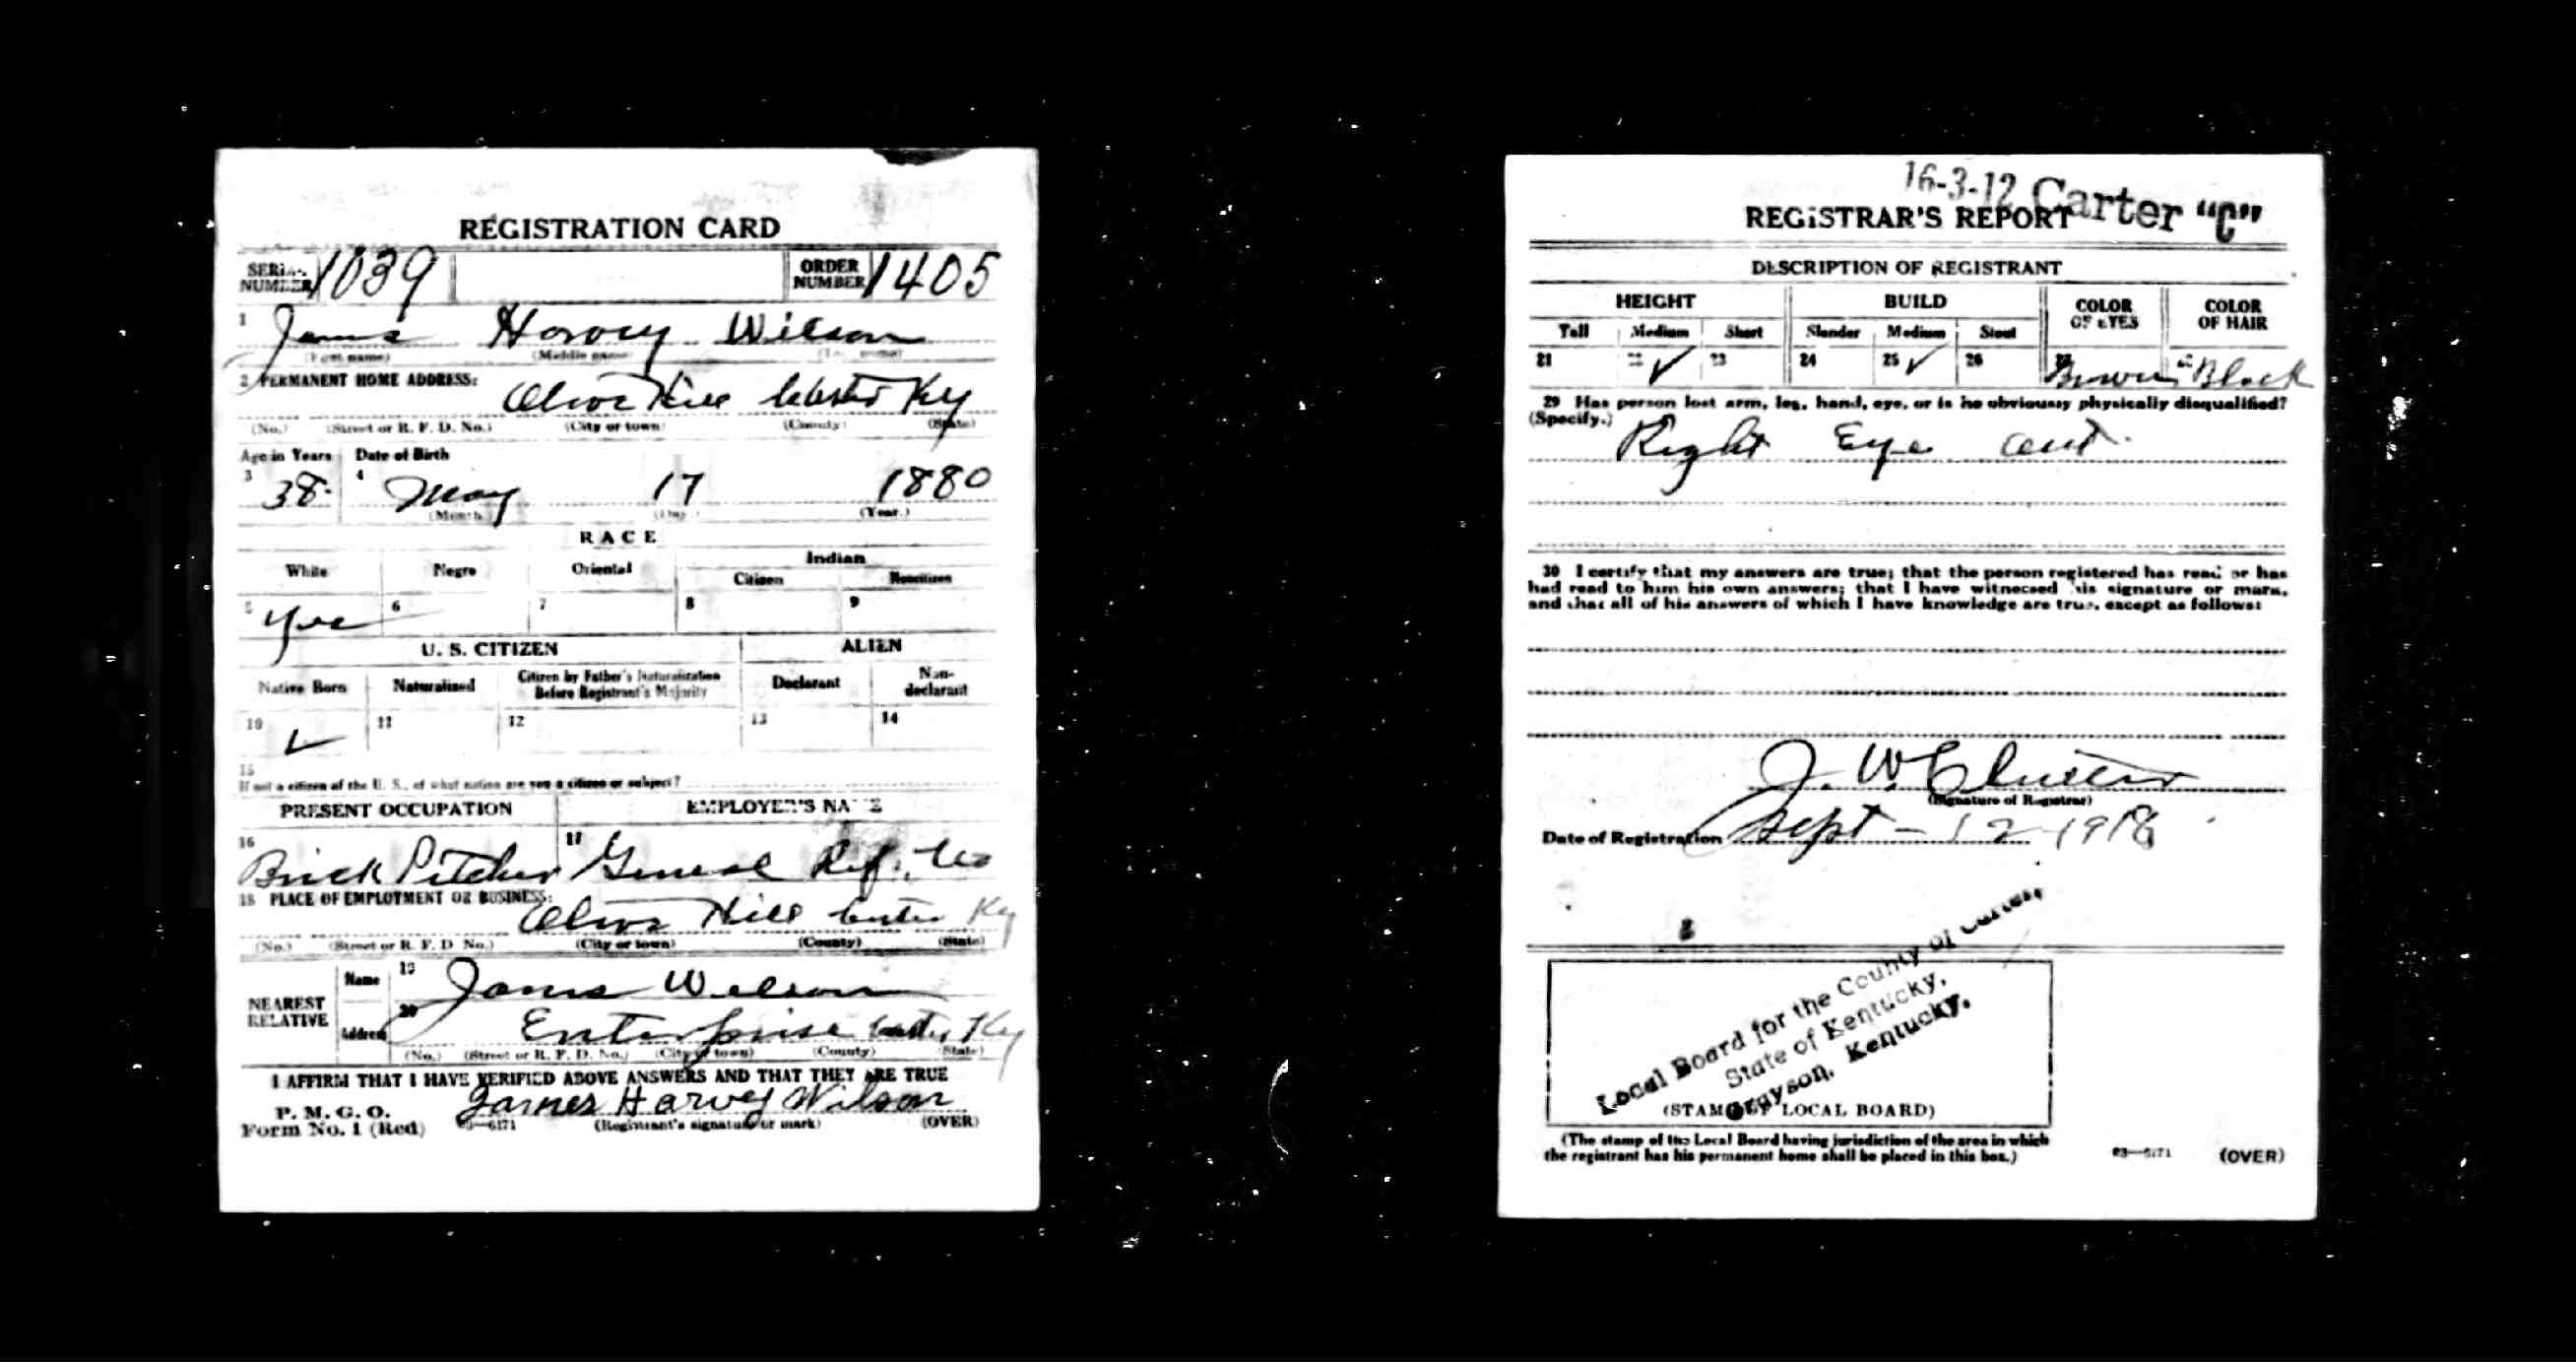 REGISTRATION CARD
SERIAL NUMBER 1039 ORDER NUMBER 1405
1 James Harvey Wilson
(First name) (Middle name) (Last name)
2 PERMANENT HOME ADDRESS:
Olive Hill Carter Ky
(No.) (Street or R. F. D. No.) (City or town) (County) (State)
Age in Years Date of Birth
3 38 4 May 17 1880
(Month) (Day) (Year.)
RACE
White Negro Oriental Indian
Citizen Noncitizen
5 Yes 6 7 8 9
U. S. CITIZEN ALIEN
Native Born Naturalized Citizen by Father's Naturalization Before Registrant's Majority Declarant Non-declarant
10 ✓ 11 12 13 14
15
If not a citizen of the U. S., of what nation are you a citizen or subject?
PRESENT OCCUPATION EMPLOYER'S NAME
16 Brick Pitcher 17 General Ref. Co
18 PLACE OF EMPLOYMENT OR BUSINESS:
Olive Hill Carter Ky
(No.) (Street or R. F. D. No.) (City or town) (County) (State)
NEAREST RELATIVE
Name 19 James Wilson
Address 20 Enterprise Carter Ky
(No.) (Street or R. F. D. No.) (City or town) (County) (State)
I AFFIRM THAT I HAVE VERIFIED ABOVE ANSWERS AND THAT THEY ARE TRUE
P. M. G. O.
Form No. 1 (Red) 03—6171 James Harvey Wilson
(Registrant's signature or mark) (OVER)
16-3-12 Carter "C"
REGISTRAR'S REPORT
DESCRIPTION OF REGISTRANT
HEIGHT BUILD COLOR OF EYES COLOR OF HAIR
Tall Medium Short Slender Medium Stout
21 22 ✓ 23 24 25 ✓ 26 27 Brown 28 Black
29 Has person lost arm, leg, hand, eye, or is he obviously physically disqualified?
(Specify.) Right Eye out.
30 I certify that my answers are true; that the person registered has read or has
had read to him his own answers; that I have witnessed his signature or mark,
and that all of his answers of which I have knowledge are true, except as follows:
J. W.
(Signature of Registrar)
Date of Registration Sept - 12 1918
Local Board for the County of Carter,
State of Kentucky,
Grayson, Kentucky.
(STAMP OF LOCAL BOARD)
(The stamp of the Local Board having jurisdiction of the area in which
the registrant has his permanent home shall be placed in this box.)
03—6171 (OVER)